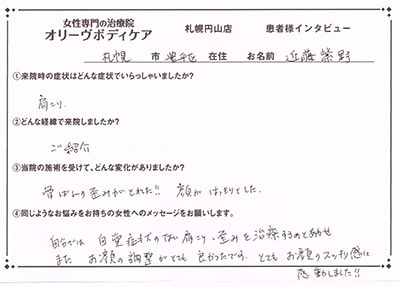 女性専門の治療院
オリーヴボディケア 札幌円山店 患者様インタビュー
札幌 市 豊平区 在住 お名前 近藤紫野
①来院時の症状はどんな症状でいらっしゃいましたか?
肩こり
②どんな経緯で来院しましたか?
ご紹介
③当院の施術を受けて、どんな変化がありましたか?
骨ばんの歪みがとれた!! 顔が はっきりとした。
④同じようなお悩みをお持ちの女性へのメッセージをお願いします。
自分では 自覚症状のない肩こり、歪みを治療するのとあわせ
また お顔の調整がとても良かったです。とてもお顔のスッキリ感に
感動しました!!